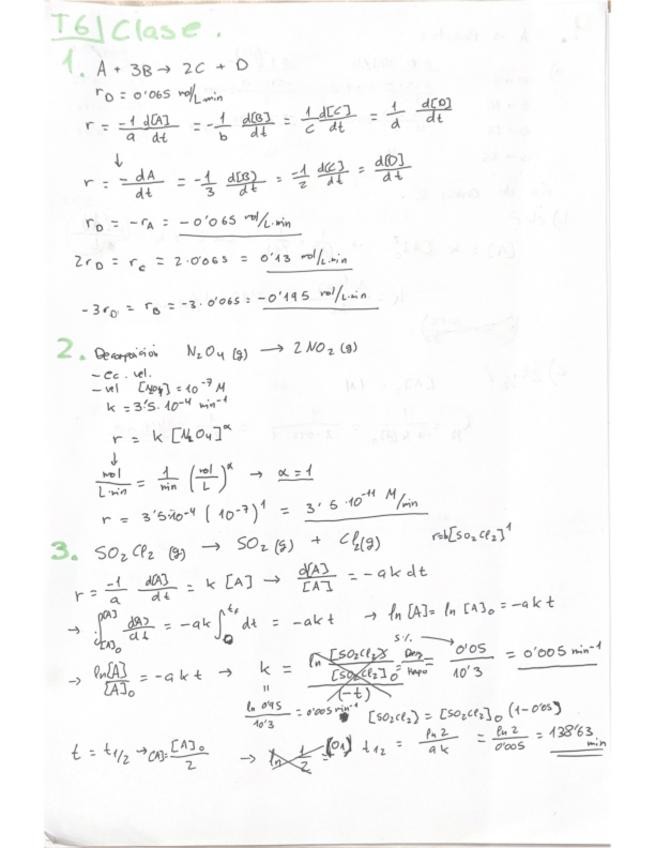 T6 Clase.
1. A + 3B → 2C + D
r_D = 0'065 mol/L·min
r = -1/a d[A]/dt = -1/b d[B]/dt = 1/c d[C]/dt = 1/d d[D]/dt
↓
r = -dA/dt = -1/3 d(B)/dt = -1/2 d(C)/dt = d[D]/dt
r_D = -r_A = -0'065 mol/L·min
2r_D = r_C = 2·0'065 = 0'13 mol/L·min
-3r_D = r_B = -3·0'065 = -0'195 mol/L·min
2. Descomposición N2O4 (g) → 2NO2 (g)
- Ec. vel.
- vel = 10^-7 M
k = 3'5·10^-4 min^-1
r = k [N2O4]^α
↓
mol/L·min = 1/min (mol/L)^α → α = 1
r = 3'5·10^-4 (10^-7)^1 = 3'5·10^-11 M/min
3. SO2Cl2 (g) → SO2 (g) + Cl2(g) [SO2Cl2]^1
r = -1/a d(A)/dt = k [A] → d[A]/[A] = -ak dt
→ ∫ = -ak ∫ dt = -akt → ln [A] = ln [A]0 = -akt
→ ln[A]/[A]0 = -akt → k = ln [SO2Cl2]/[SO2Cl2]0 /(-t) = 5% 0'05/10'3 = 0'005 min^-1
ln 0'95/10'3 = 0'005 min^-1 [SO2Cl2] = [SO2Cl2]0 (1-0'05)
t = t1/2 → [A] = [A]0/2 → ln 1/2 t1/2 = ln 2/ak = ln 2/0'005 = 138'63 min